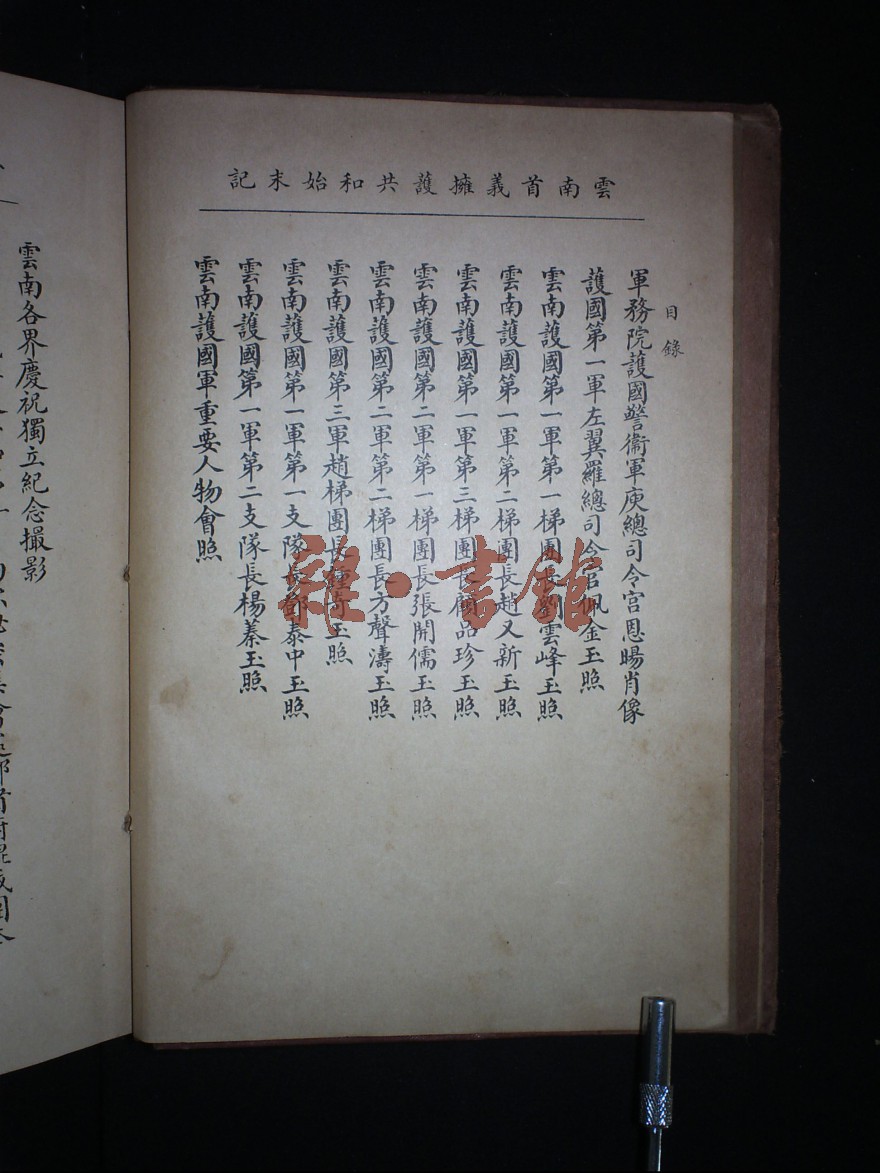 雲南首義擁護共和始末記
目錄
軍務院護國警衞軍庾總司令宫恩暘肖像
護國第一軍左翼羅總司令官佩金玉照
雲南護國第一軍第一梯團長劉雲峰玉照
雲南護國第一軍第二梯團長趙又新玉照
雲南護國第一軍第三梯團長顧品珍玉照
雲南護國第二軍第一梯團長張開儒玉照
雲南護國第二軍第二梯團長方聲濤玉照
雲南護國第三軍趙梯團長鍾奇玉照
雲南護國第一軍第一支隊長鄧泰中玉照
雲南護國第一軍第二支隊長楊蓁玉照
雲南護國軍重要人物會照
雜·書館
雲南各界慶祝獨立紀念撮影